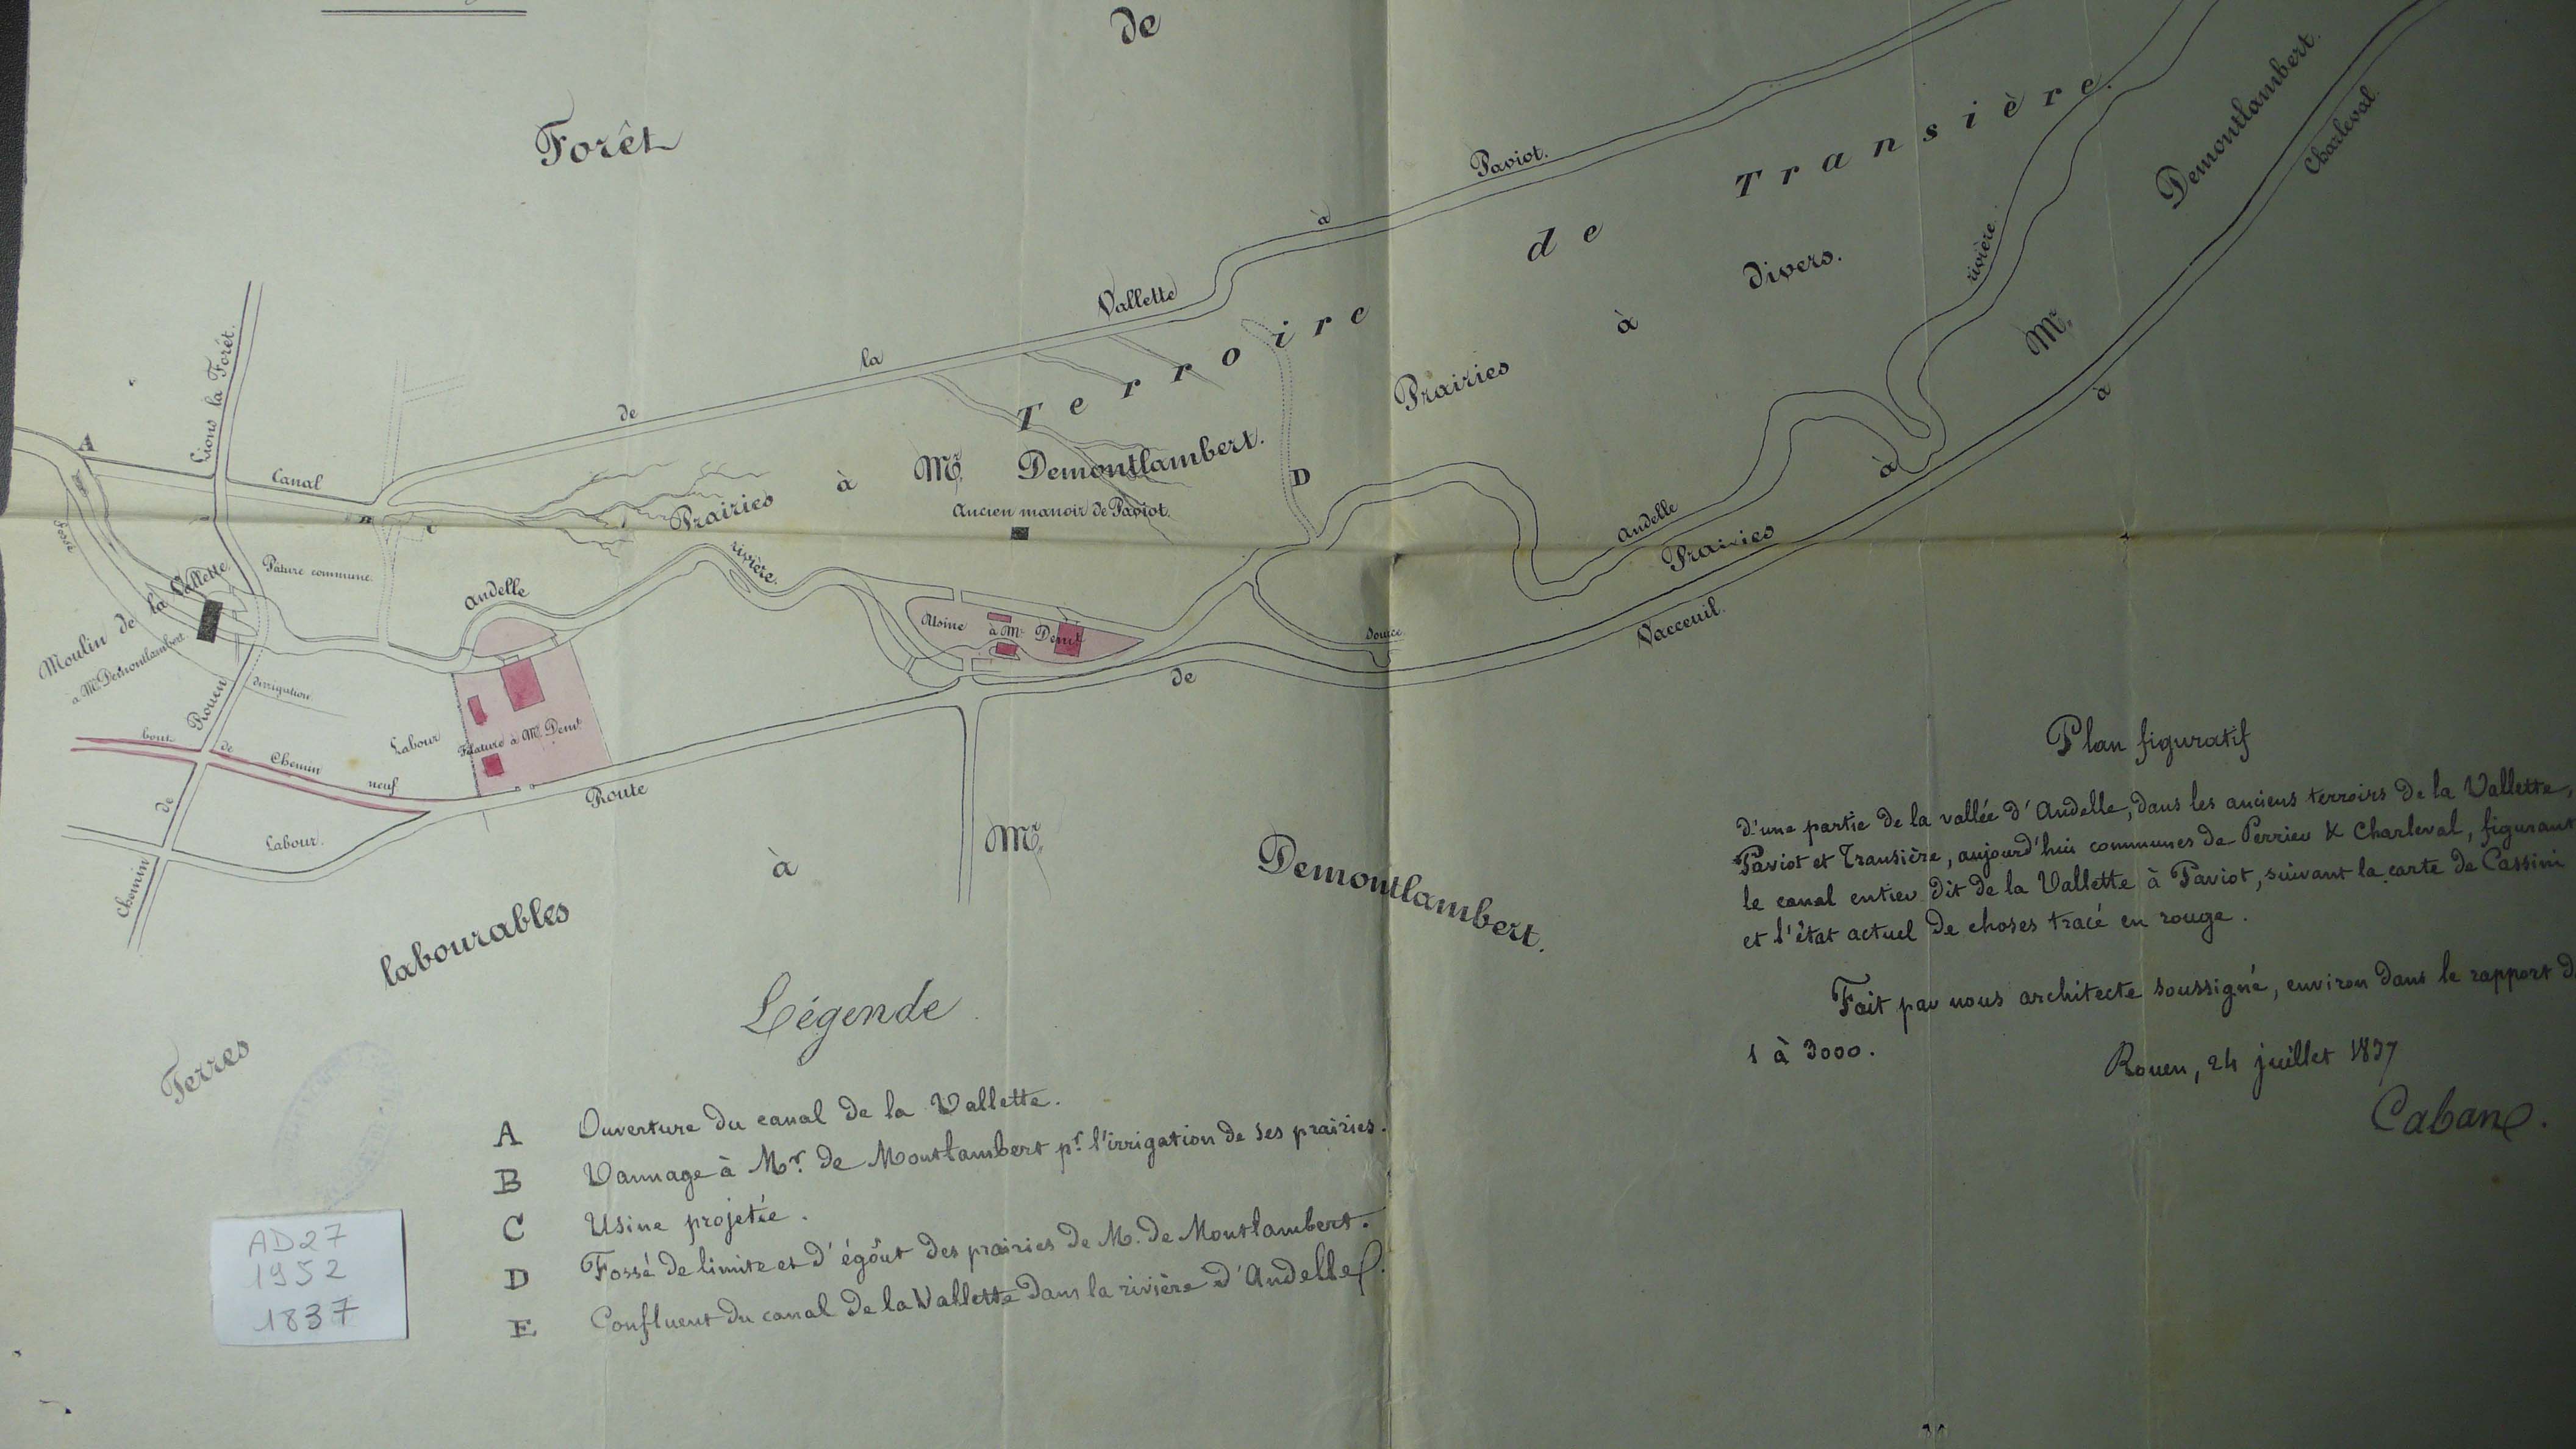 de
Forêt
Demontlambert.
Charleval.
Transière.
Paviot.
à
de
divers.
rivière
à
Mr.
Vallette
Terroire
Prairies
à
la
de
Lions la Forêt.
A
Canal
Prairies
à
Mr. Demontlambert.
Ancien manoir de Paviot.
D
B
C
fossé
Pâture commune.
Andelle
rivière
Andelle
Prairies
à
Moulin de la Vallette
à Mr. Demontlambert.
Usine à Mr. Demt
source
Vacceuil.
de
dirrigation
Rouen
bout de Chemin neuf
Labour
Filature à Mr. Demt.
Route
de
Labour.
Chemin
Terres labourables à Mr. Demontlambert.
Légende
A Ouverture du canal de la Vallette.
B Vannage à Mr. de Montlambert pr. l'irrigation de ses prairies.
C Usine projetée.
D Fossé de limite et d'égôut des prairies de M. de Montlambert.
E Confluent du canal de la Vallette dans la rivière d'Andelle.
Plan figuratif
d'une partie de la vallée d'Andelle, dans les anciens terroirs de la Vallette,
Paviot et Transière, aujourd'hui communes de Perriev & Charleval, figurant
le canal entier dit de la Vallette à Paviot, suivant la carte de Cassini
et l'état actuel de choses tracé en rouge.
Fait par nous architecte soussigné, environ dans le rapport d
1 à 3000.
Rouen, 24 juillet 1837
Caban
AD27
1952
1837